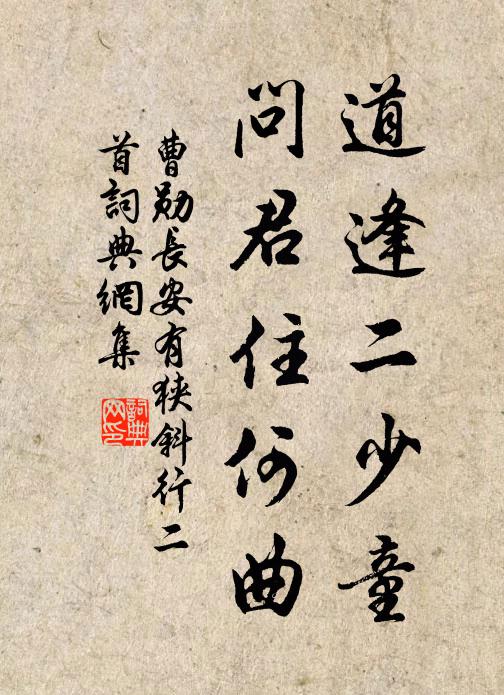 道逢二少童
問君住何曲
曹勛長安有狹斜行二
首詞典網集
詞典
网印